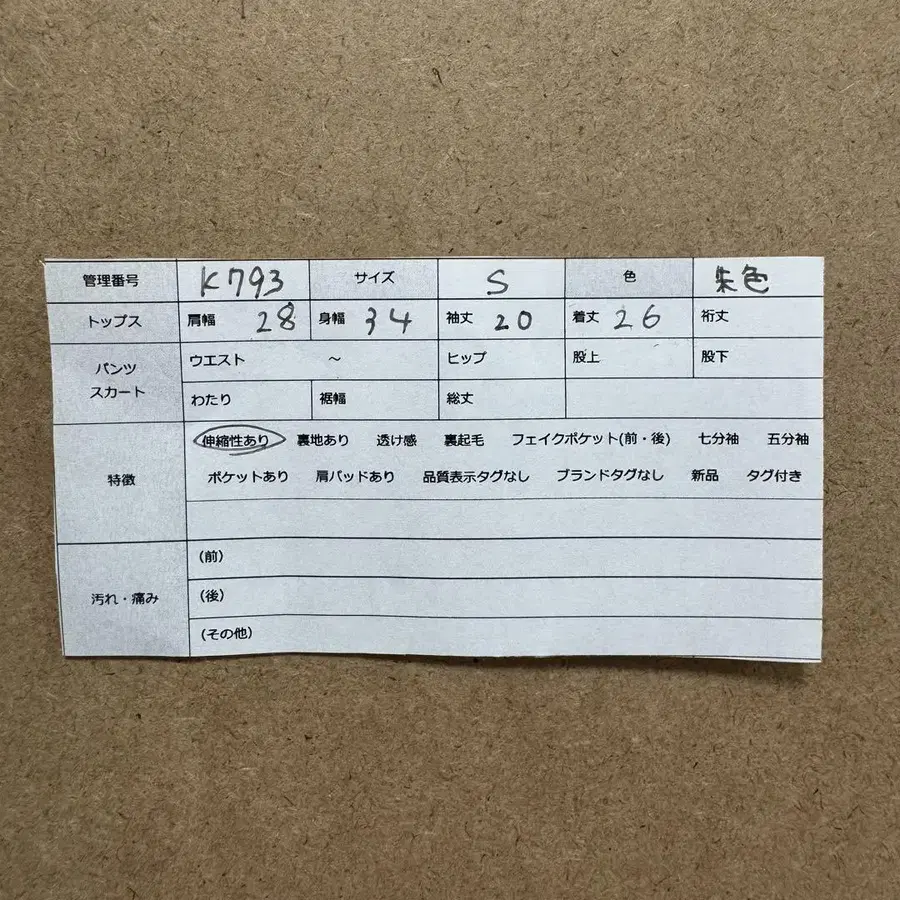 管理番号 K793 サイズ S 色 朱色
トップス 肩幅 28 身幅 34 袖丈 20 着丈 26 裄丈
パンツ スカート
ウエスト ～ ヒップ 股上 股下
わたり 裾幅 総丈
特徴
伸縮性あり 裏地あり 透け感 裏起毛 フェイクポケット(前・後) 七分袖 五分袖
ポケットあり 肩パッドあり 品質表示タグなし ブランドタグなし 新品 タグ付き
汚れ・痛み
(前)
(後)
(その他)